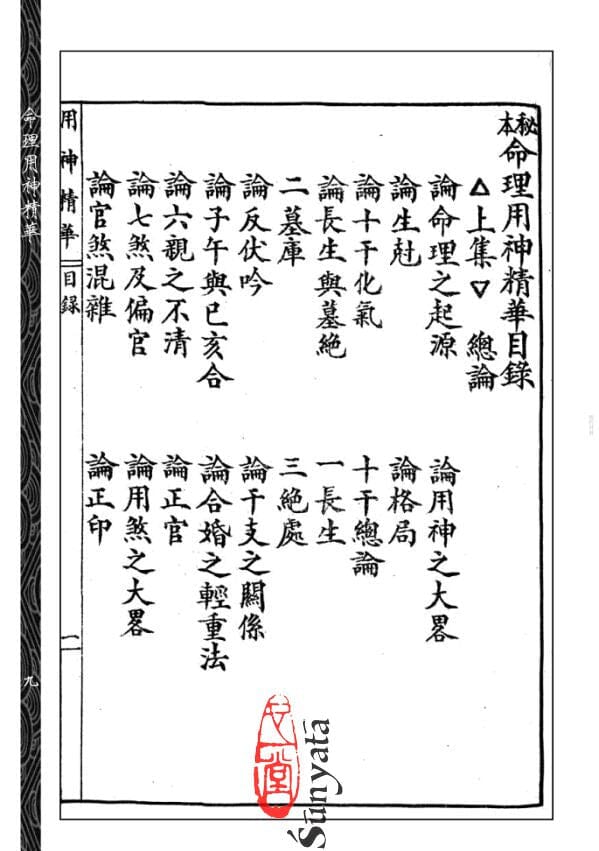 秘本命理用神精華目錄
△上集▽　總論
論命理之起源　論用神之大畧
論生尅　論格局
論十干化氣　十干總論
論長生與墓絕　一長生
二墓庫　三絕處
論反伏吟　論干支之關係
論子午與巳亥合　論合婚之輕重法
論六親之不清　論正官
論七煞及偏官　論用煞之大畧
論官煞混雜　論正印
用神精華
目錄
一
命理用神精華
九
Śūnyatā